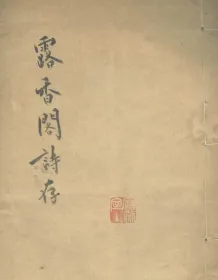 露香閣詩存